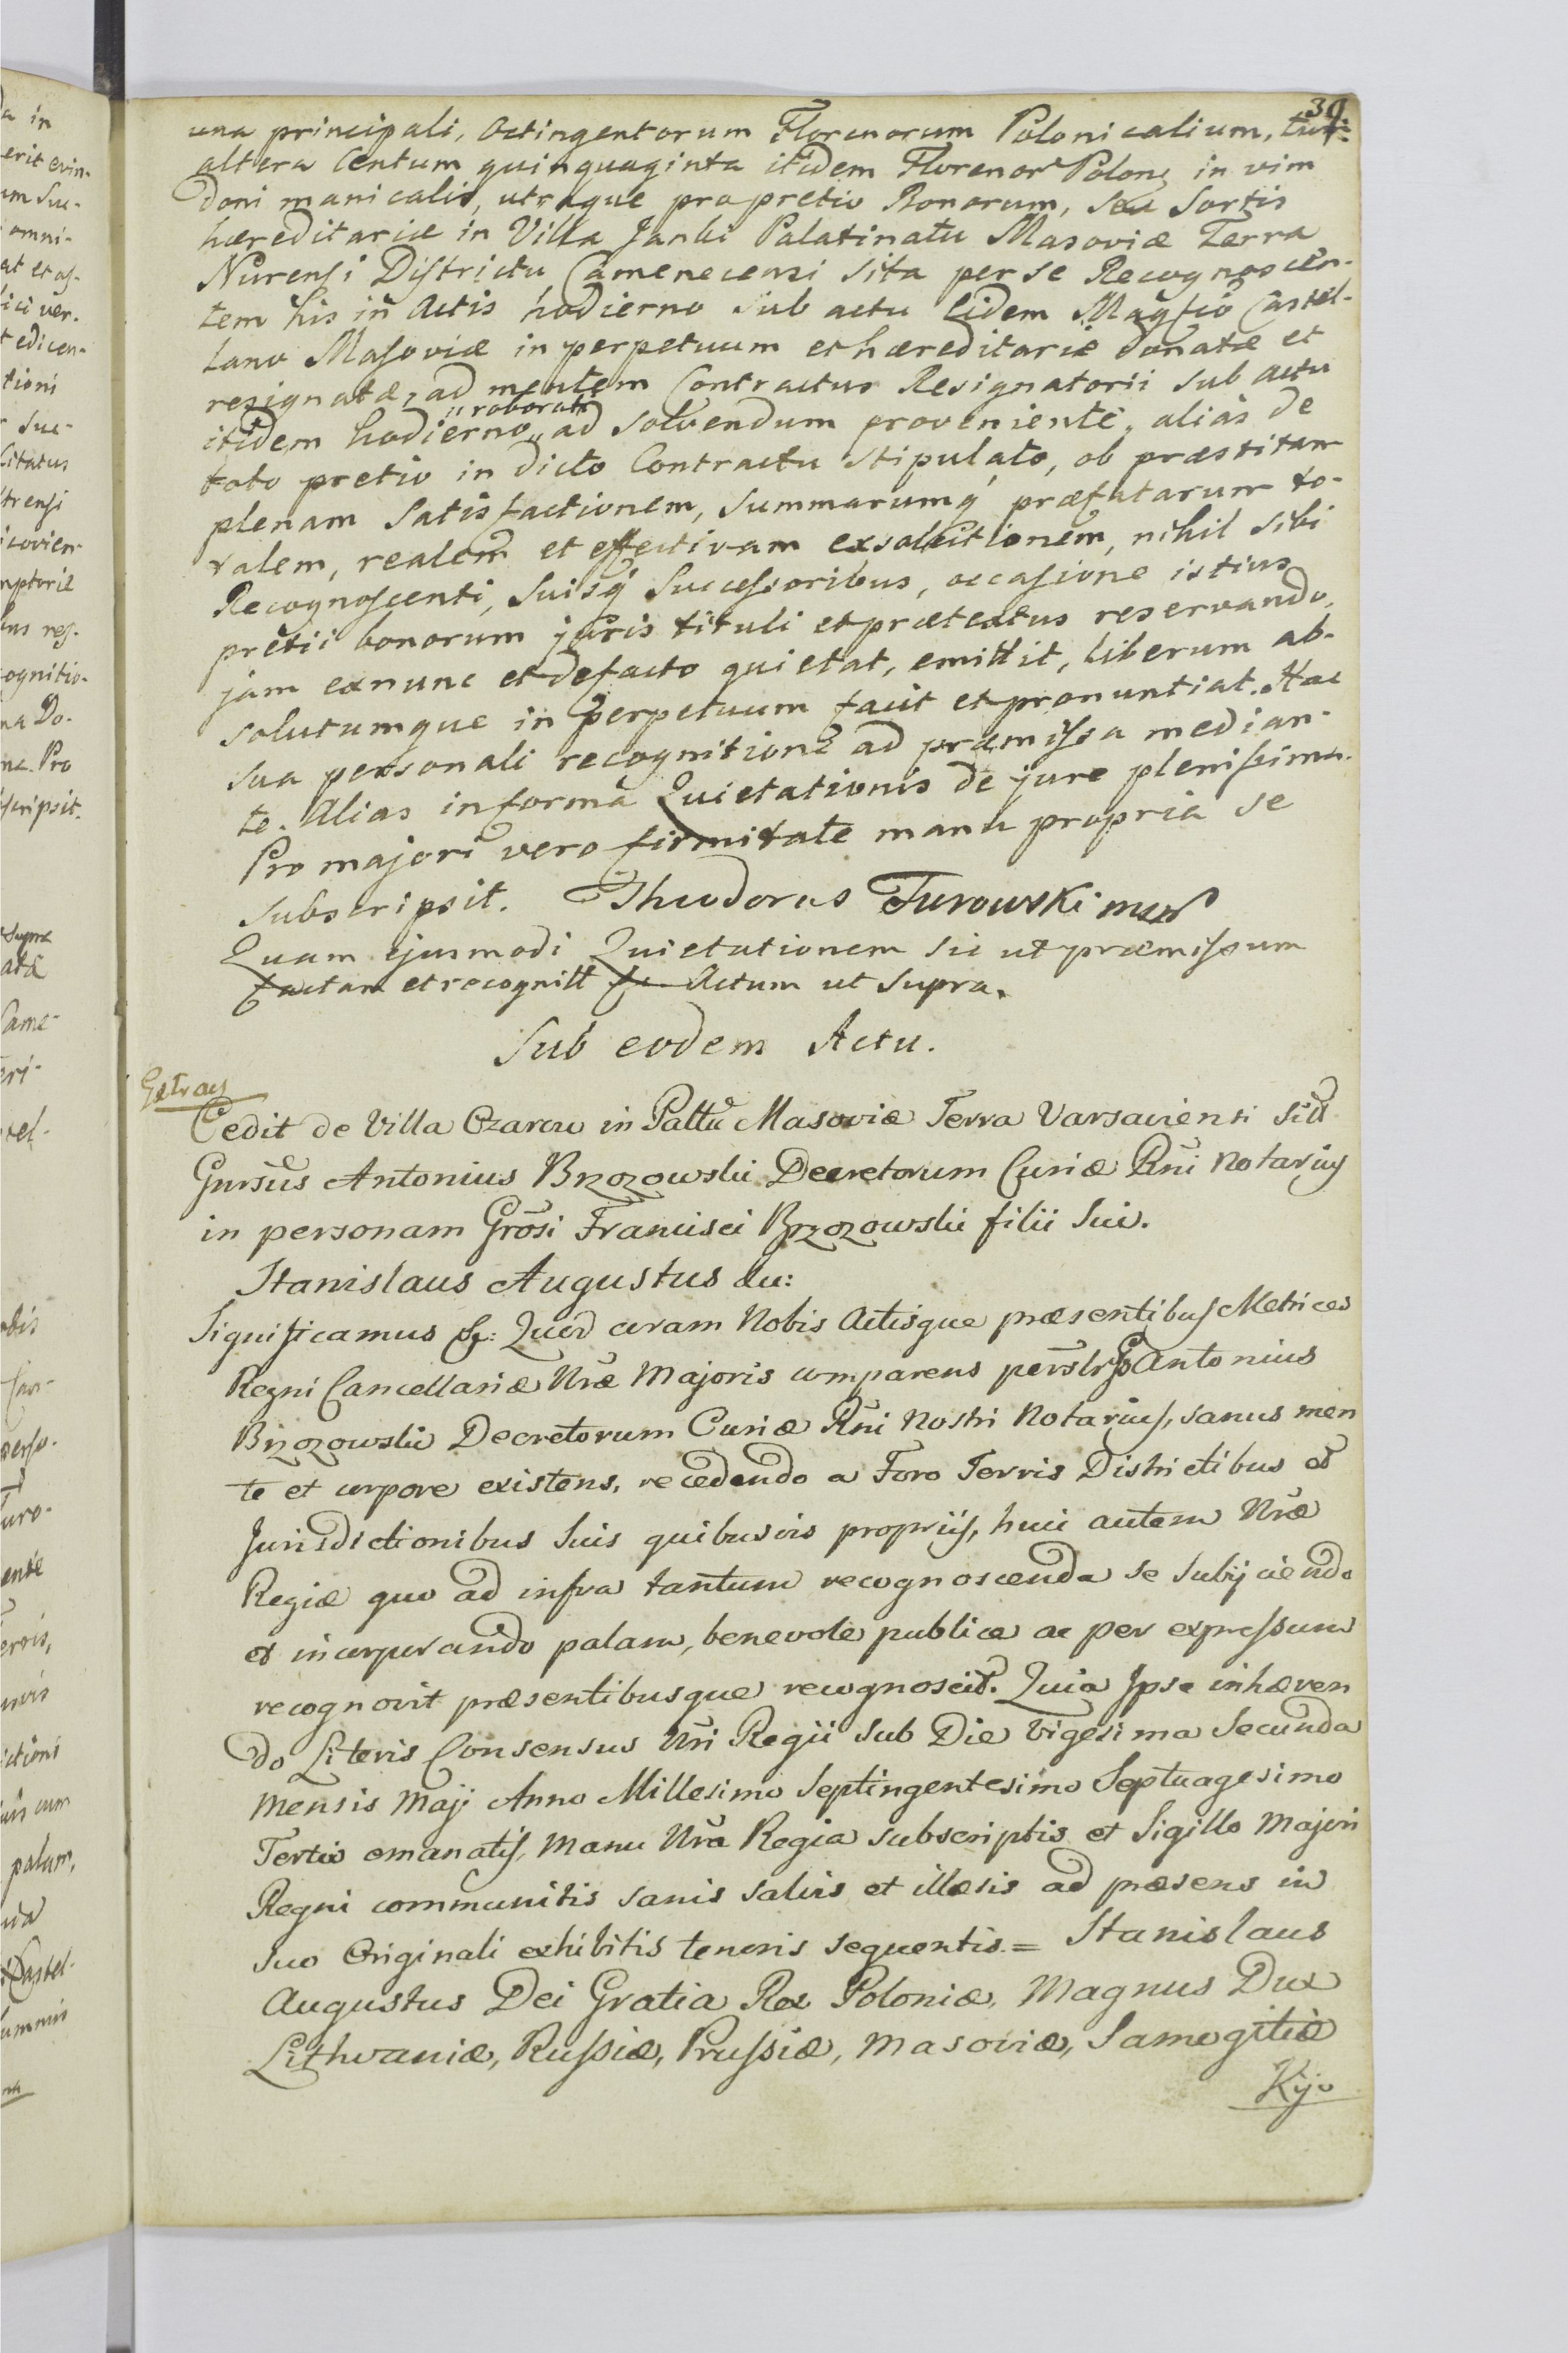 39
una principali, Octingentorum Florenorum Polonicalium, tum
altera Centum quinquaginta itidem Florenor Polon, in vim
Doni manicalis, utraque pro pretio Bonorum, seu Sortis
hæreditariæ in Villa Janki Palatinatu Masoviæ Terra
Nurensi Districtu Camenecensi sita per se Recognoscen-
tem his in Actis hodierno sub actu Eidem Magfco Castel-
lano Masoviæ in perpetuum et hæreditarie donatæ et
resignatæ, ad mentem Contractus Resignatorii sub actu
itidem hodierno " roborati " ad solvendum proveniente, alias de
toto pretio in dicto Contractu stipulato, ob præstitam
plenam satisfactionem, summarumq præfatarum to-
talem, realem et effectivam exsolutionem, nihil sibi
Recognoscenti, suisq Successoribus, occasione istius
pretii bonorum juris tituli et prætextus reservando,
jam exnunc et defacto quietat, emittit, liberum ab-
solutumque in perpetuum facit et pronuntiat. Hac
sua personali recognitione ad præmissa median-
te. Alias in forma Quietationis de jure plenissima.
Pro majori vero firmitate manu propria se
subscripsit. Theodorus Turowski mpp
Quam ejusmodi Quietationem sic ut præmissum
factam et recognitt Actum ut supra.
Sub eodem Actu.
Extrac
Cedit de Villa Ozarow in Palttu Masoviæ Terra Varsaviensi sitt
Gnrsus Antonius Brzozowski Decretorum Curiæ Rni Notarius
in personam Grosi Francisci Brzozowski filii sui.
Stanislaus Augustus &c:
Significamus &c: Quod coram Nobis Actisque præsentibus Metrices
Regni Cancellariæ Nræ Majoris comparens persolr Gs Antonius
Brzozowski Decretorum Curiæ Rni Nostri Notarius, sanus men
te et corpore existens, recedendo a Foro Terris Districtibus et
Jurisdictionibus suis quibusvis propriis, huic autem Nræ
Regiæ quo ad infra tantum recognoscenda se subjiciendo
et incorporando palam, benevole publice ac per expressum
recognovit præsentibusque recognoscit. Quia Ipse inhæren
do Literis Consensus Nri Regii sub Die Vigesima Secunda
Mensis Maji Anno Millesimo Septingentesimo Septuagesimo
Tertio emanatis, Manu Nra Regia subscriptis et Sigillo Majori
Regni communitis sanis salvis et illæsis ad præsens in
suo Originali exhibitis tenoris sequentis = Stanislaus
Augustus Dei Gratia Rex Poloniæ, Magnus Dux
Lithvaniæ, Russiæ, Prussiæ, Masoviæ, Samogitiæ
Kijo